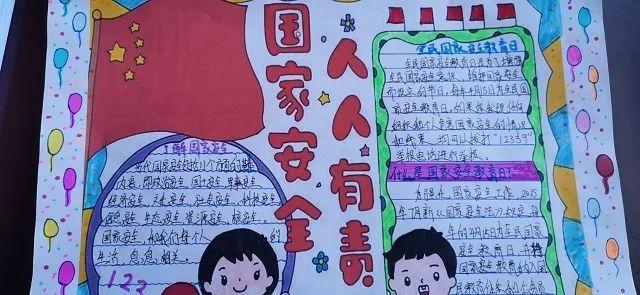 国家安全
人人有责
了解国家安全
当代国家安全包括11个方面的
内容，即政治安全、国土安全、军事安全、
经济安全、文化安全、社会安全、科技安全、
信息安全、生态安全、资源安全、核安全。
国家安全，和我们每个人的
生活，息息相关。
123
全民国家安全教育日
全民国家安全教育日是为了增强
全民国家安全意识，维护国家安全
而设立的节日，每年4月15日为全民国
家安全教育日。如果发现任何
组织和个人危害国家安全的情况
和线索，均可以拨打"12339"
举报电话进行举报。
什么是国家安全教育日？
为强化国家安全工作，2015
年7月新《国家安全法》规定，每
年的4月15日为全民国
家安全教育日，